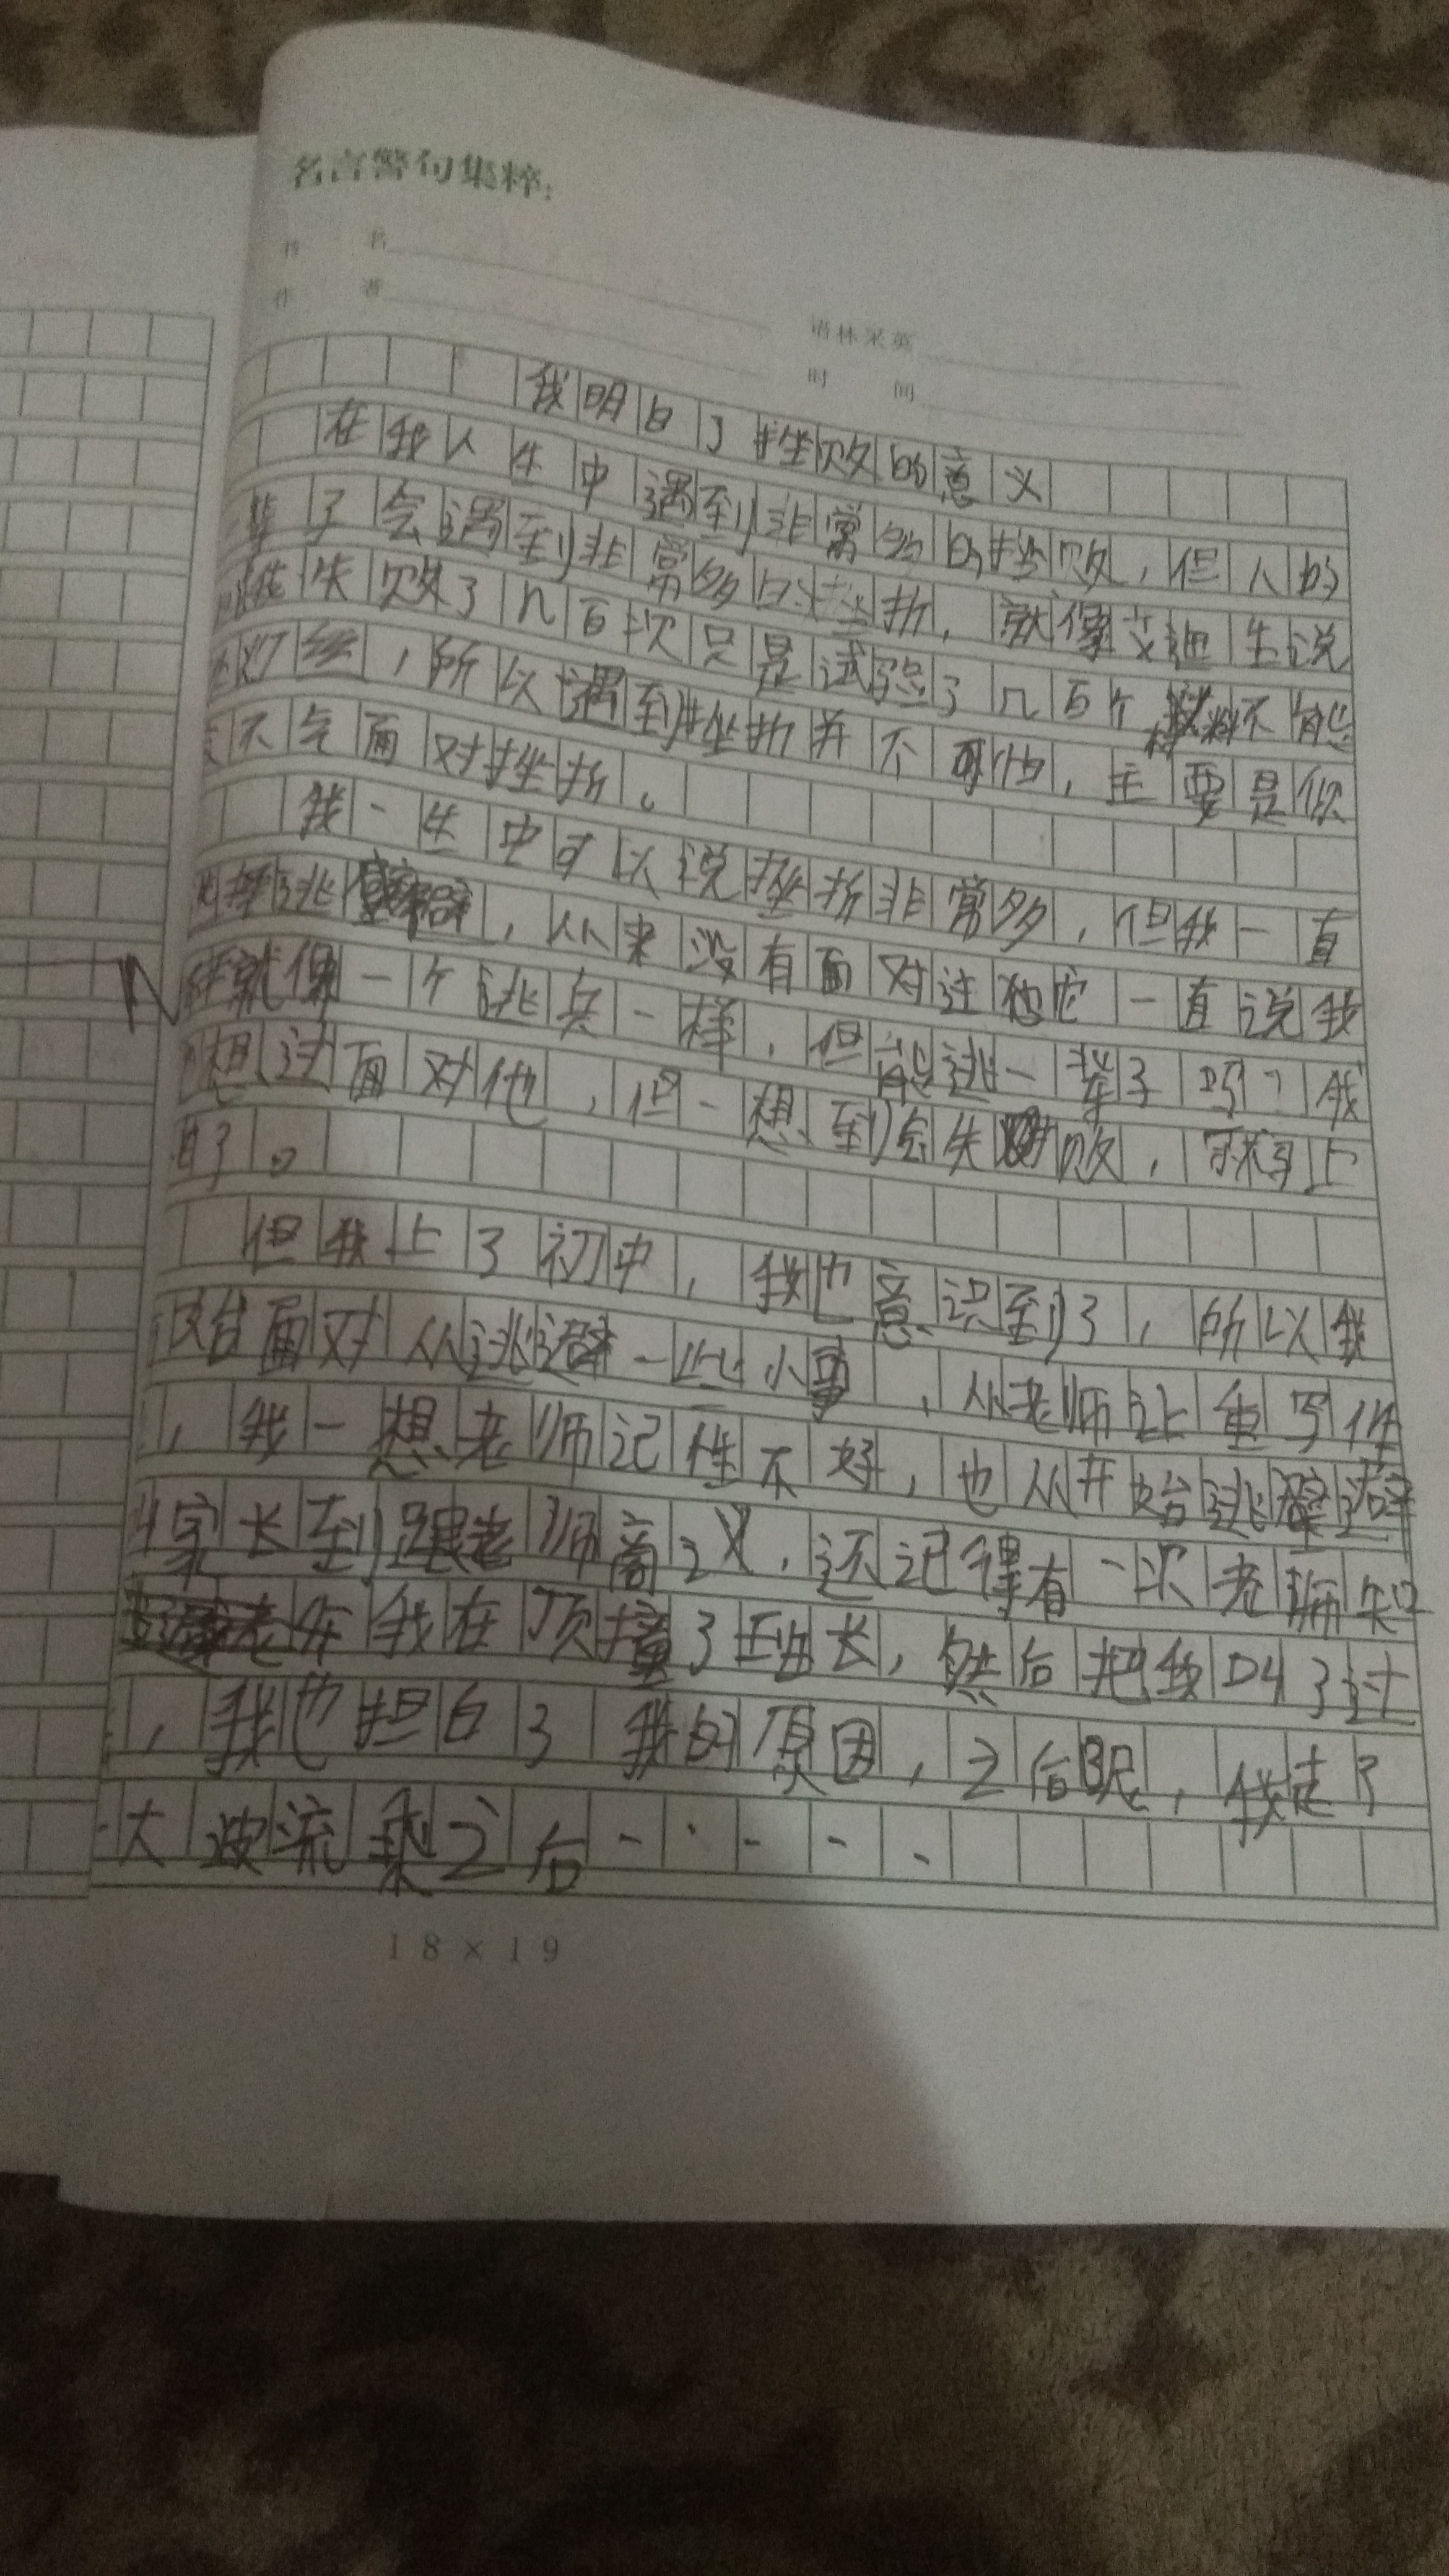 名言警句集粹:
书 名
作 者
语林采英
时 间
我明白了挫败的意义
在我人生中遇到非常多的挫败,但人的
辈子会遇到非常多的挫折,就像艾迪生说
失败了几百次只是试验了几百个材料不能
灯丝,所以遇到挫折并不可怕,主要是你
不气面对挫折。
我一生中可以说挫折非常多,但我一直
逃避,从来没有面对过他它一直说我
就像一个逃兵一样,但能逃一辈子吗?我
想过面对他,但一想到会失败,
了。
但我上了初中,我也意识到了,所以我
始面对从逃避一些小事,从老师让重写作
,我一想老师记性不好,也从开始逃避
家长到跟老师商议,还记得有一次老师知
我在顶撞了班长,然后把我叫了过
,我也坦白了我的原因,之后呢,我走了
大波流乘之后
18×19